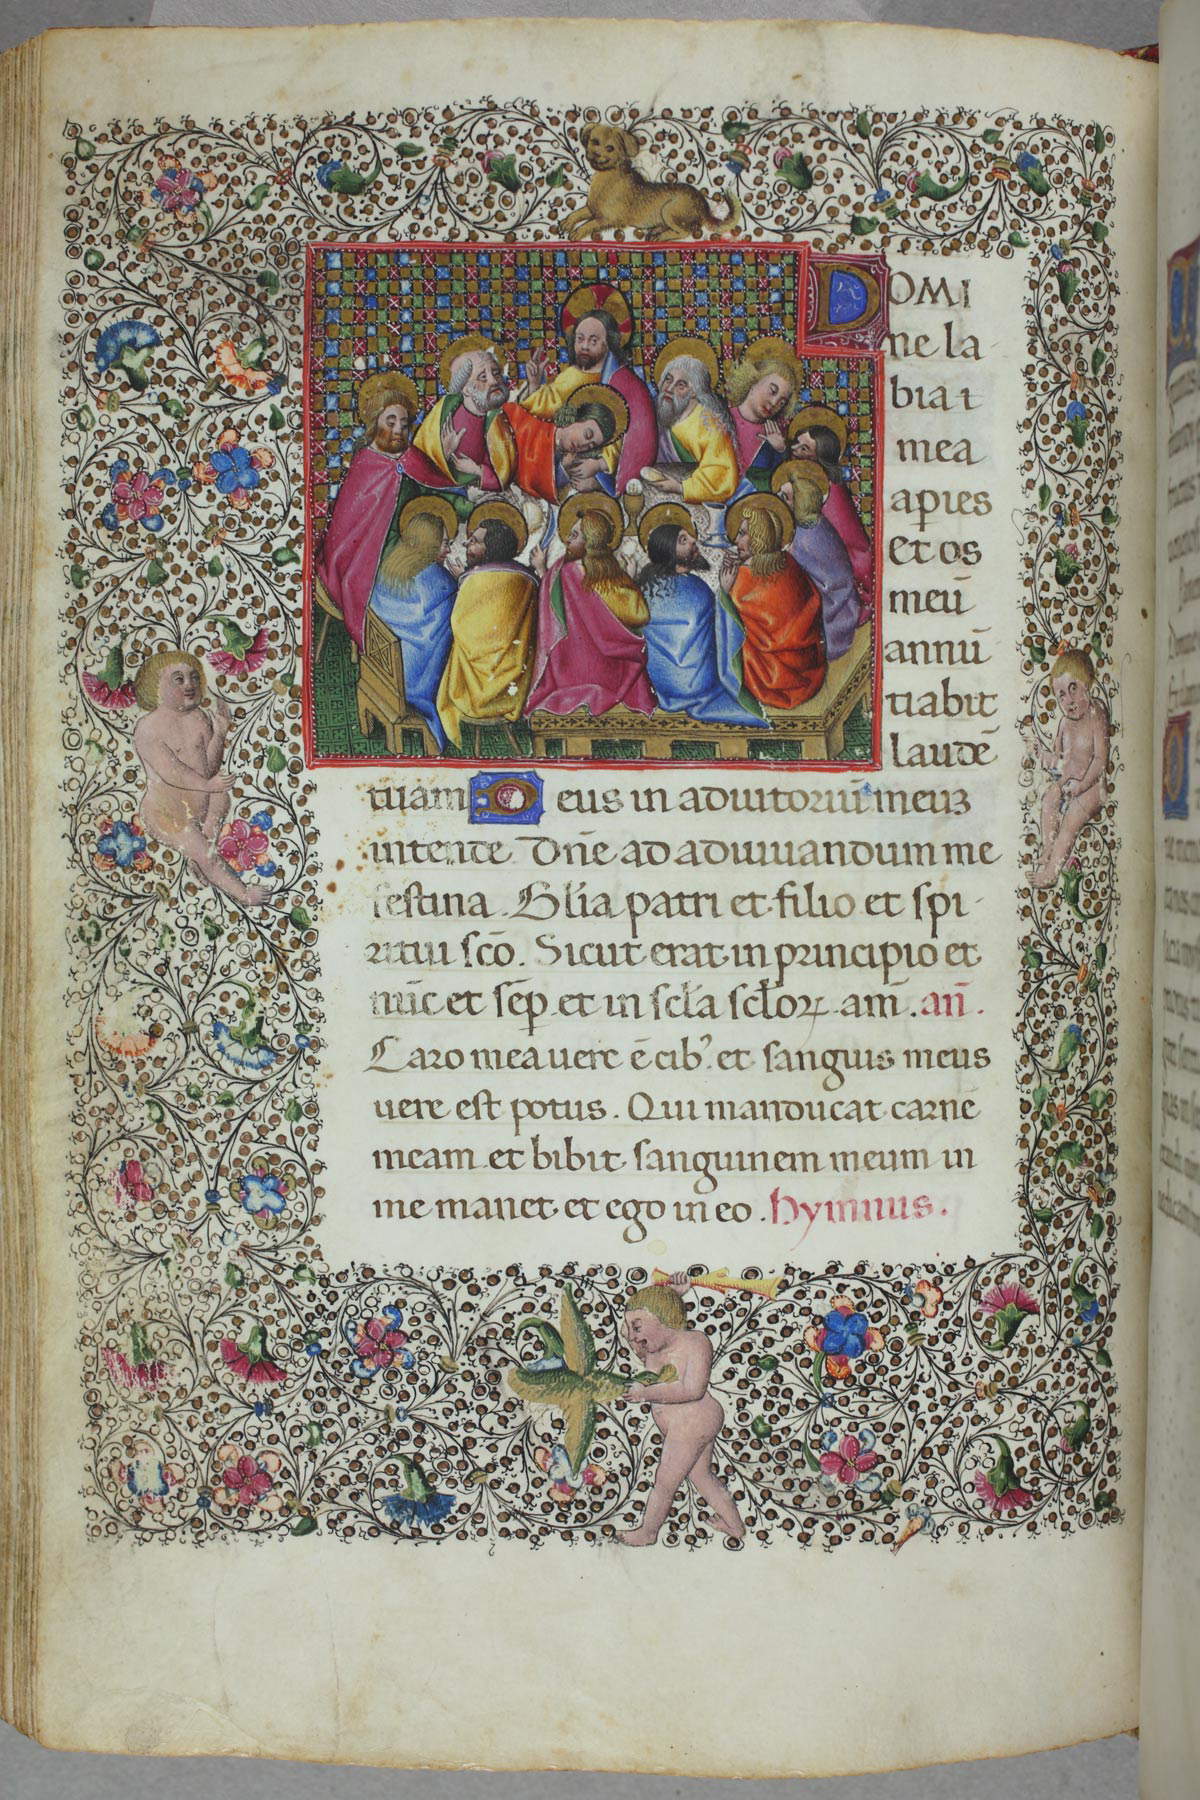 DOMI
ne la
bia
mea
apies
et os
meū
annū
tiabit
laudē
tuam Deus in adiutoriū meuz
intende Dn̄e ad adiuuandum me
festina. Gl̄ia patri et filio et spi-
ritui sc̄o. Sicut erat in principio et
nūc et sēp et in scl̄a scl̄oꝝ am̄. an̄.
Caro mea uere ē cib⁹. et sanguis meus
uere est potus. Qui manducat carnē
meam et bibit sanguinem meum in
me manet et ego in eo. hymnus.